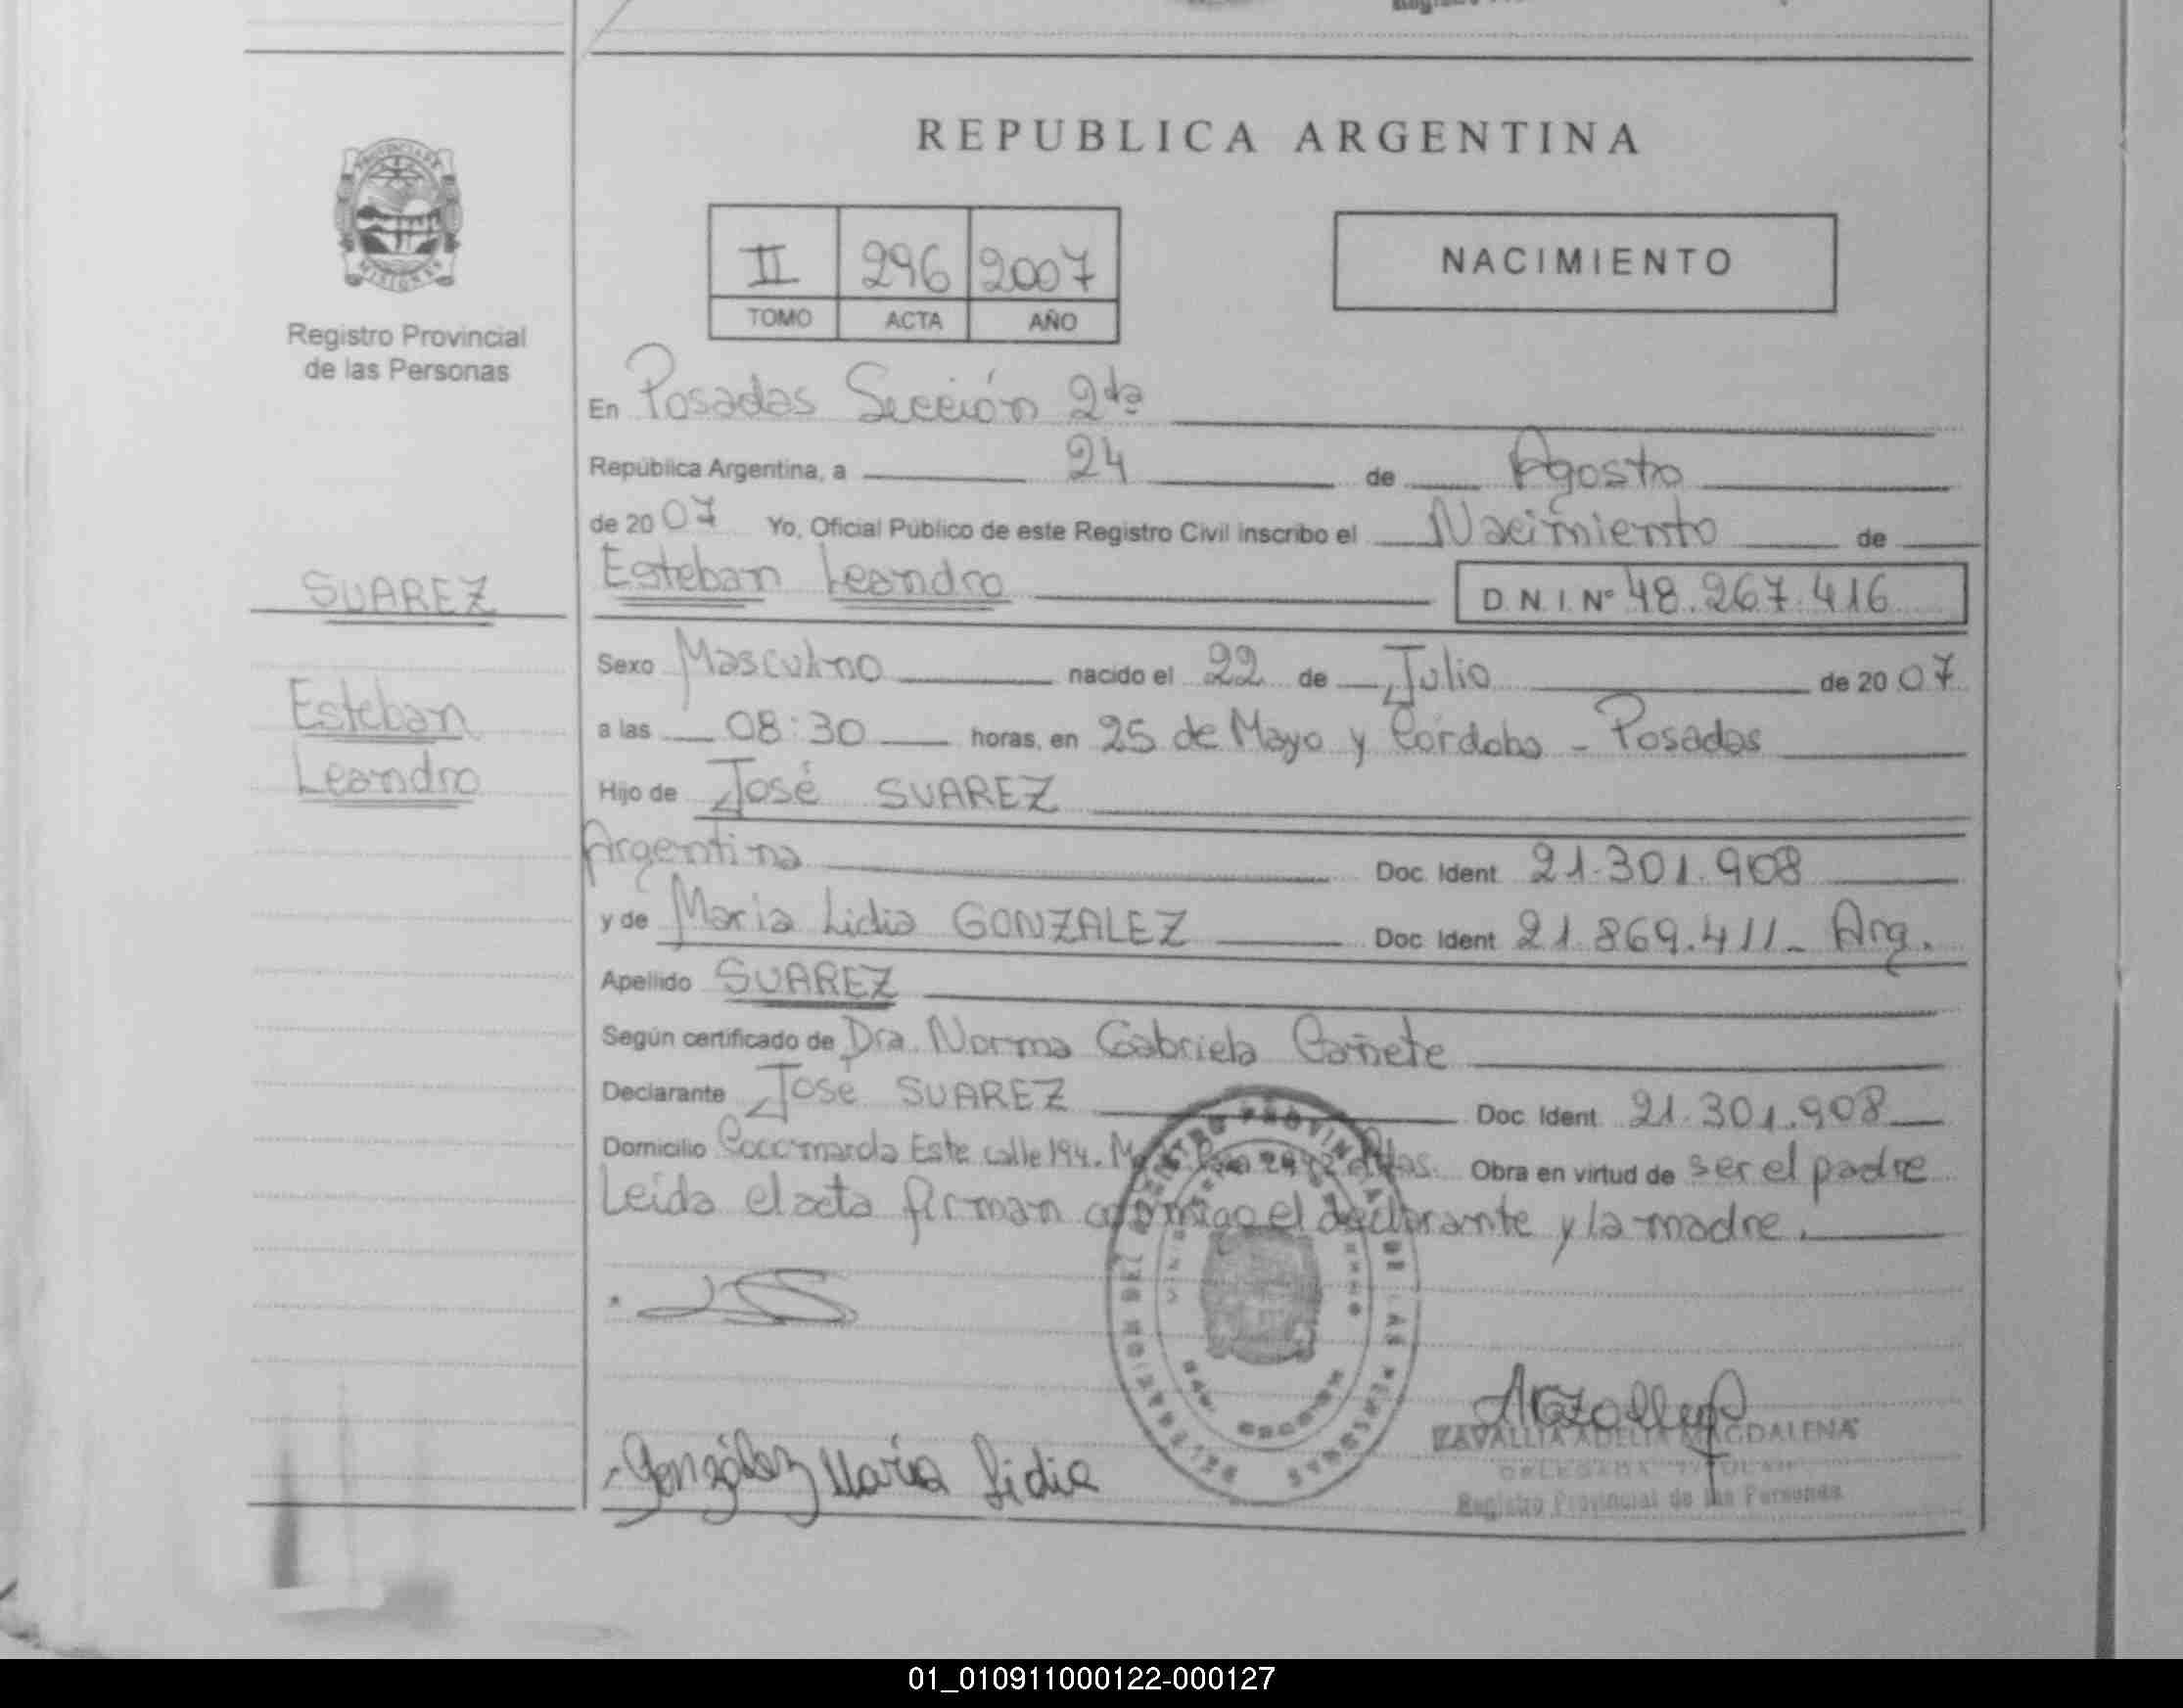 REPUBLICA ARGENTINA
II 296 2007
TOMO ACTA AÑO
NACIMIENTO
PROVINCIA DE
MISIONES
Registro Provincial
de las Personas
SUAREZ
Esteban
Leandro
En Posadas Sección 2da
República Argentina, a 24 de Agosto
de 2007 Yo, Oficial Público de este Registro Civil inscribo el Nacimiento de
Esteban Leandro D.N.I. Nº 48.267.416
Sexo Masculino nacido el 22 de Julio de 2007
a las 08:30 horas, en 25 de Mayo y Córdoba - Posadas
Hijo de José SUAREZ
Argentina Doc. Ident. 21.301.908
y de María Lidia GONZALEZ Doc. Ident. 21.869.411- Arg.
Apellido SUAREZ
Según certificado de Dra. Norma Gabriela Cañete
Declarante José SUAREZ Doc. Ident. 21.301.908
Domicilio Cocomarola Este calle 194. Obra en virtud de ser el padre
Leída el acta firman conmigo el declarante y la madre.
González María Lidia
ZAVALLIA ADELIA MAGDALENA
DELEGADA TITULAR
Registro Provincial de las Personas
01_010911000122-000127